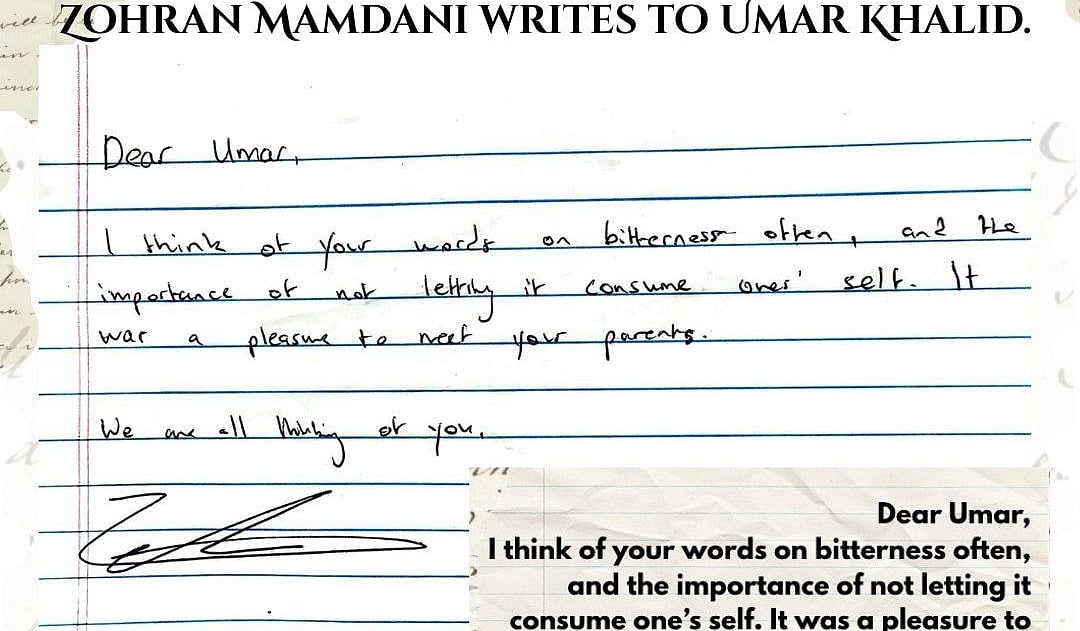 ZOHRAN MAMDANI WRITES TO UMAR KHALID.
Dear Umar,
I think of your words on bitterness often, and the
importance of not letting it consume ones' self. It
was a pleasure to meet your parents.
We are all thinking of you.
Dear Umar,
I think of your words on bitterness often,
and the importance of not letting it
consume one's self. It was a pleasure to